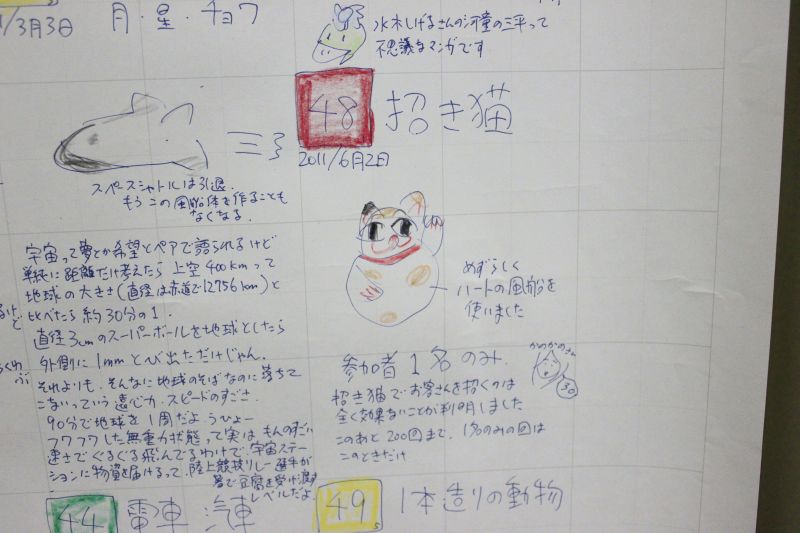 /3月3日 月・星・チョウ
スペースシャトルは引退.
もうこの風船体を作ることも
なくなる.
宇宙って夢とか希望とペアで語られるけど
単純に距離だけ考えたら上空400kmって
地球の大きさ(直径は赤道で12756km)と
比べたら約30分の1.
直径3cmのスーパーボールを地球としたら
外側に1mmとび出ただけじゃん.
それよりも.そんなに地球のそばなのに落ちて
こないっていう遠心力.スピードのすごさ.
90分で地球を1周だよ.うひょー
フワフワした無重力状態って実はものすごい
速さでぐるぐる飛んでるわけで.宇宙ステー
ションに物資を届けるって.陸上競技リレー選手が
箸で豆腐を受け渡す
レベルだよ
44 電車 汽車
水木しげるさんの河童の三平って
不思議なマンガです
48 招き猫
2011/6月2日
めずらしく
ハートの風船を
使いました
参加者1名のみ.
かめかめさん
30
招き猫でお客さんを招くのは
全く効果ないことが判明しました
このあと200回まで.1名のみの回は
このときだけ
49 1本造りの動物